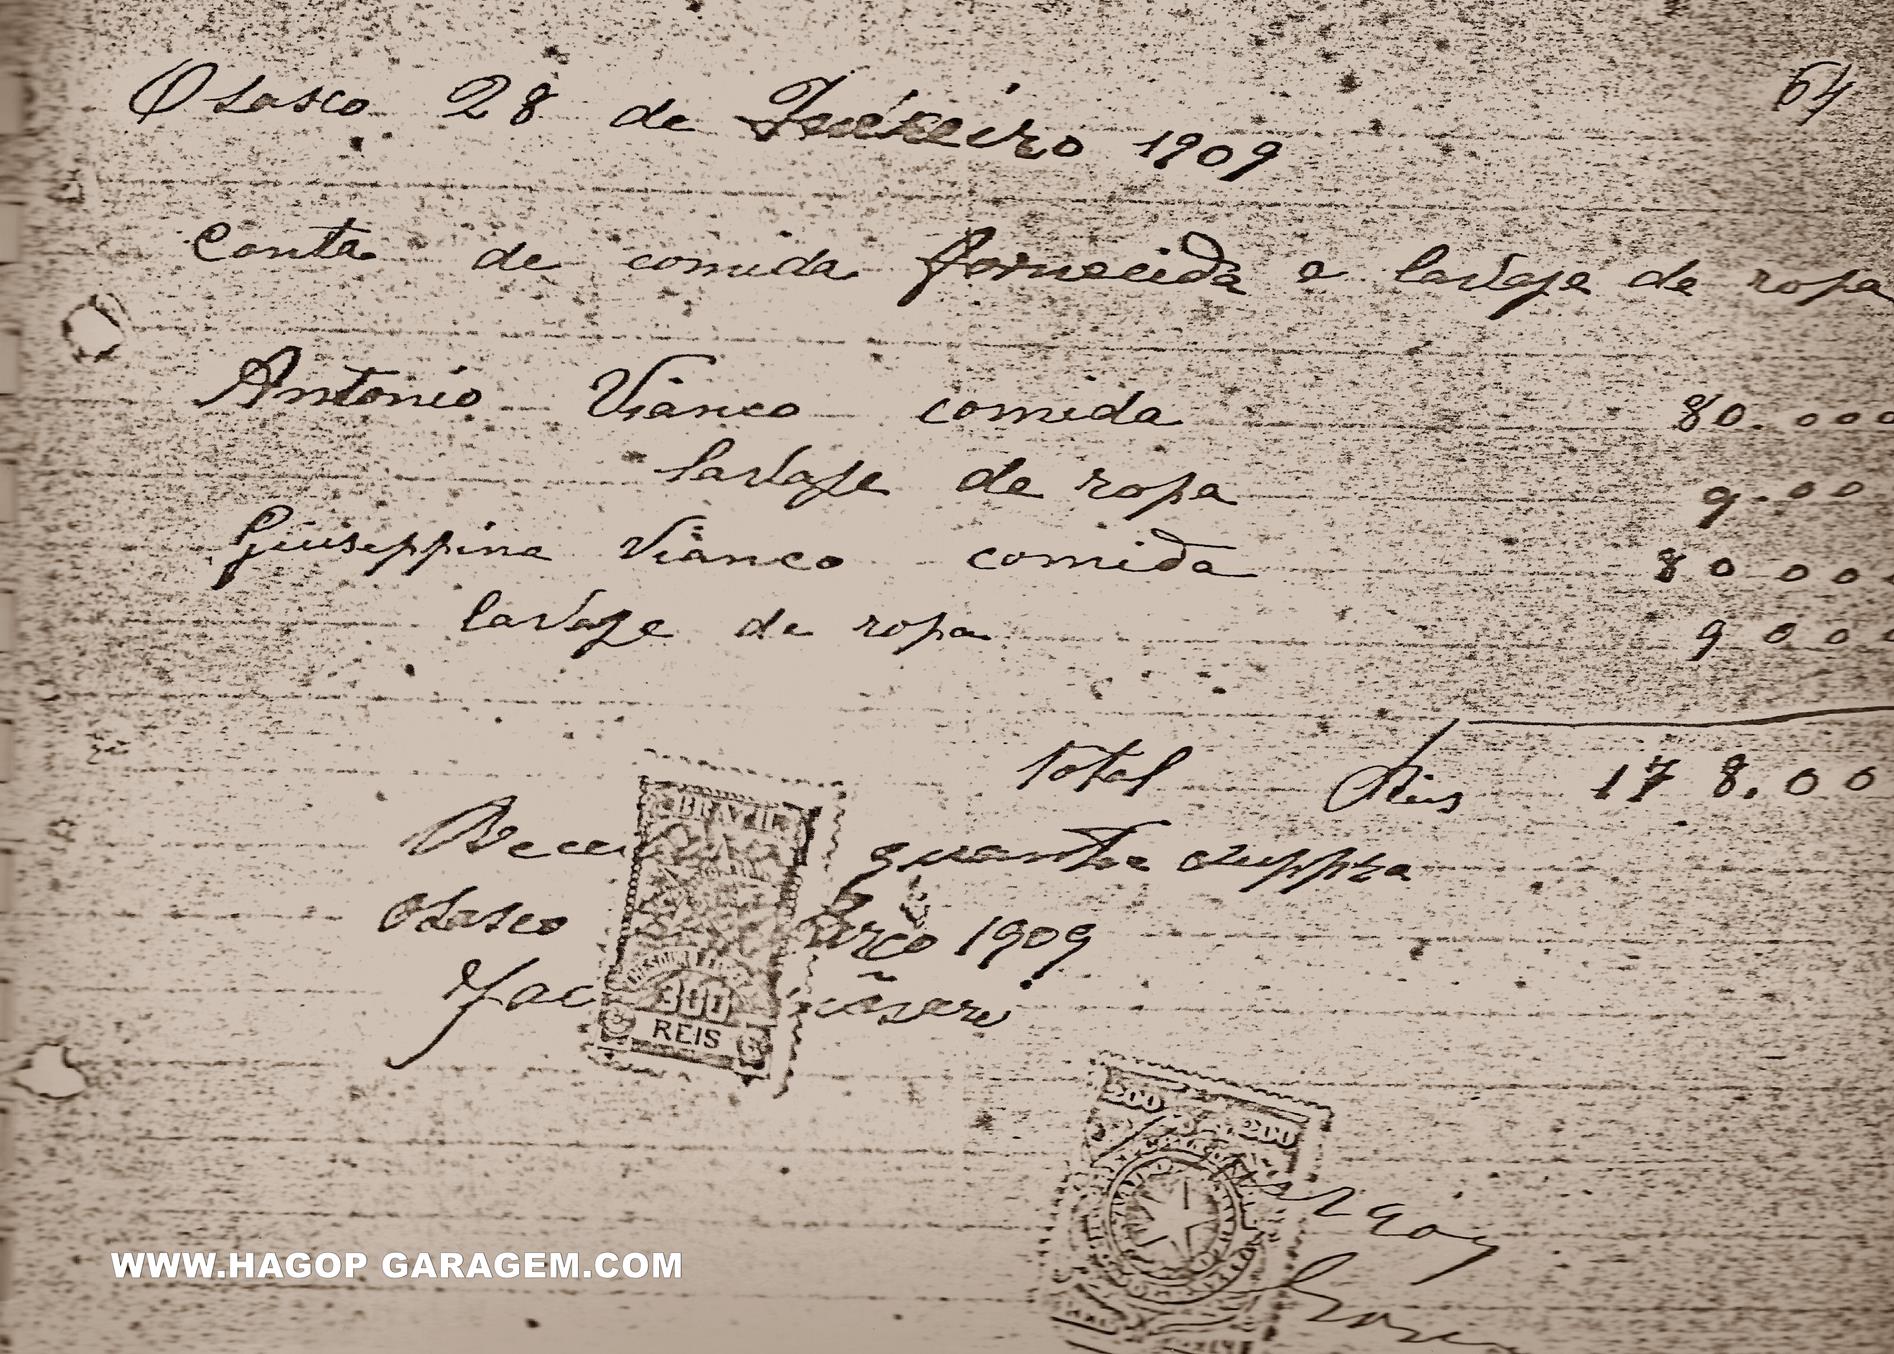 64
Osasco 28 de Fevereiro 1909
Conta de comida fornecida e lavaje de ropa
Antonio Vianco comida 80.000
lavaje de ropa 9.00
Giuseppina Vianco comida 80 000
lavaje de ropa 9 000
total Reis 178.00
quantia suppra
Osasco 1909
BRAZIL
300
REIS
200 200
WWW.HAGOP GARAGEM.COM